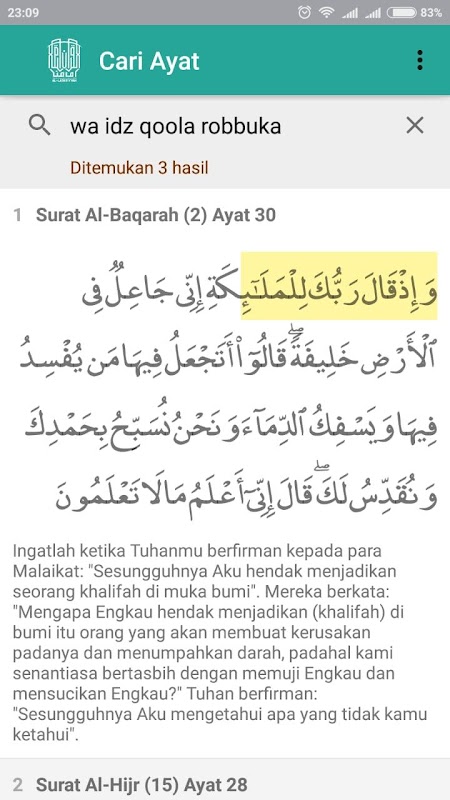 23:09
83%
Cari Ayat
wa idz qoola robbuka
Ditemukan 3 hasil
1 Surat Al-Baqarah (2) Ayat 30
وَإِذْ قَالَ رَبُّكَ لِلْمَلَـٰٓئِكَةِ إِنِّى جَاعِلٌ فِى
ٱلْأَرْضِ خَلِيفَةً ۖ قَالُوٓا۟ أَتَجْعَلُ فِيهَا مَن يُفْسِدُ
فِيهَا وَيَسْفِكُ ٱلدِّمَآءَ وَنَحْنُ نُسَبِّحُ بِحَمْدِكَ
وَنُقَدِّسُ لَكَ ۖ قَالَ إِنِّىٓ أَعْلَمُ مَا لَا تَعْلَمُونَ
Ingatlah ketika Tuhanmu berfirman kepada para
Malaikat: "Sesungguhnya Aku hendak menjadikan
seorang khalifah di muka bumi". Mereka berkata:
"Mengapa Engkau hendak menjadikan (khalifah) di
bumi itu orang yang akan membuat kerusakan
padanya dan menumpahkan darah, padahal kami
senantiasa bertasbih dengan memuji Engkau dan
mensucikan Engkau?" Tuhan berfirman:
"Sesungguhnya Aku mengetahui apa yang tidak kamu
ketahui".
2 Surat Al-Hijr (15) Ayat 28